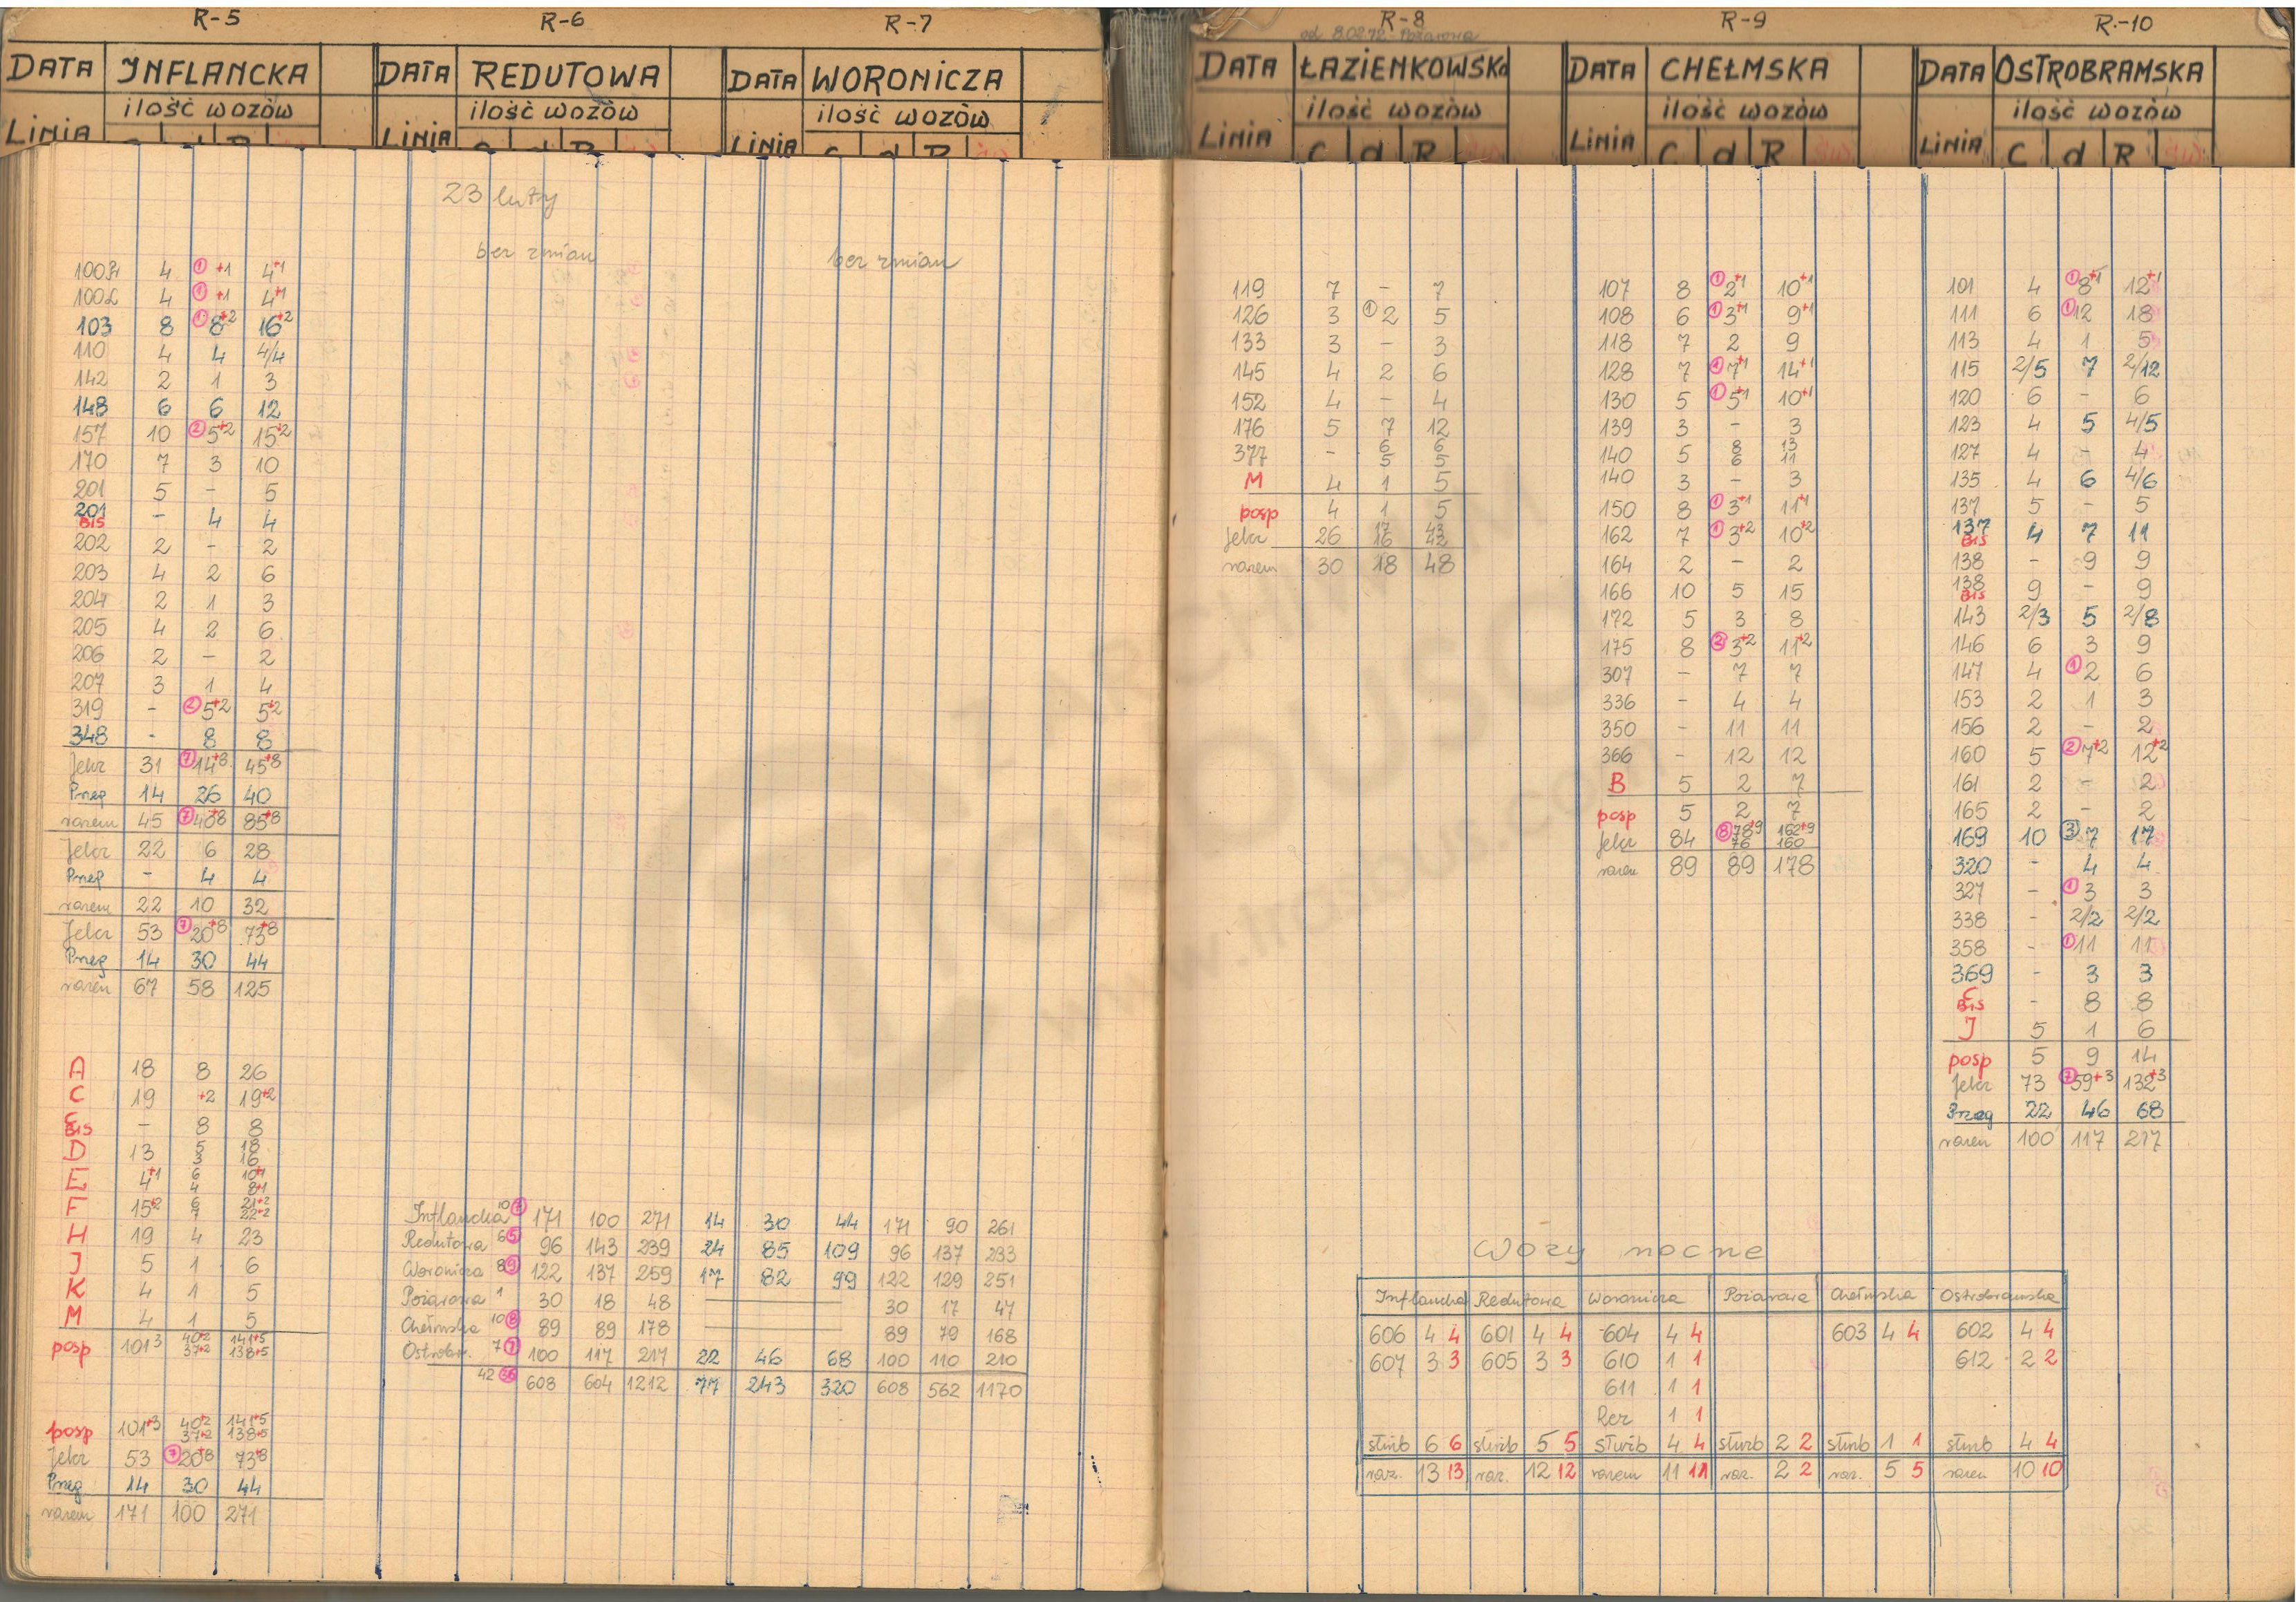 R-5
DATA INFLANCKA
ilość wozòw
LINIA
R-6
DATA REDUTOWA
ilość wozòw
LINIA
R-7
DATA WORONICZA
ilość wozòw
LINIA
R-8
od 8.02.72 - Pożarowa
DATA ŁAZIENKOWSKA
ilość wozòw
LINIA C d R
R-9
DATA CHEŁMSKA
ilość wozòw
LINIA C d R
R-10
DATA OSTROBRAMSKA
ilość wozòw
LINIA C d R
23 luty
bez zmian
bez zmian
4 ① +1 4+1
4 ① +1 4+1
103 8 ① 8+2 16+2
110 4 4 4/4
142 2 1 3
148 6 6 12
157 10 ② 5+2 15+2
170 7 3 10
201 5 - 5
201 BIS - 4 4
202 2 - 2
203 4 2 6
204 2 1 3
205 4 2 6
206 2 - 2
207 3 1 4
319 - ② 5+2 5+2
348 - 8 8
Jelcz 31 ⑦ 14+8 45+8
Przeg 14 26 40
razem 45 ⑦ 40+8 85+8
Jelcz 22 6 28
Przeg - 4 4
razem 22 10 32
Jelcz 53 ⑦ 20+8 73+8
Przeg 14 30 44
razem 67 58 125
A 18 8 26
C 19 +2 19+2
C BIS - 8 8
D 13 5 18
3 16
E 4+1 6 10+1
4 8+1
F 15+2 6 21+2
7 22+2
H 19 4 23
J 5 1 6
K 4 1 5
M 4 1 5
posp 101 3 40+2 141+5
37+2 138+5
posp 101+3 40+2 141+5
37+2 138+5
Jelcz 53 ⑦ 20+8 73+8
Przeg 14 30 44
razem 171 100 271
Inflancka 10 ⑦ 171 100 271 14 30 44 171 90 261
Redutowa 6 ⑤ 96 143 239 24 85 109 96 137 233
Woronicza 8 ⑨ 122 137 259 17 82 99 122 129 251
Pożarowa 1 30 18 48 30 17 47
Chełmska 10 ⑧ 89 89 178 89 79 168
Ostrobr. 7 ⑦ 100 117 217 22 46 68 100 110 210
42 608 604 1212 77 243 320 608 562 1170
119 7 - 7
126 3 ① 2 5
133 3 - 3
145 4 2 6
152 4 - 4
176 5 7 12
377 - 6 6
5 5
M 4 1 5
posp 4 1 5
Jelcz 26 17 43
16 42
razem 30 18 48
107 8 ① 2+1 10+1
108 6 ① 3+1 9+1
118 7 2 9
128 7 ① 7+1 14+1
130 5 ① 5+1 10+1
139 3 - 3
140 5 8 13
6 11
140 3 - 3
150 8 ① 3+1 11+1
162 7 ① 3+2 10+2
164 2 - 2
166 10 5 15
172 5 3 8
175 8 ② 3+2 11+2
307 - 7 7
336 - 4 4
350 - 11 11
366 - 12 12
B 5 2 7
posp 5 2 7
Jelcz 84 ⑧ 78+9 162+9
76 160
razem 89 89 178
101 4 ① 8+1 12+1
111 6 ① 12 18
113 4 1 5
115 2/5 7 2/12
120 6 - 6
123 4 5 4/5
127 4 - 4
135 4 6 4/6
137 5 - 5
137 BIS 4 7 11
138 - 9 9
138 BIS 9 - 9
143 2/3 5 2/8
146 6 3 9
147 4 ① 2 6
153 2 1 3
156 2 - 2
160 5 ② 7+2 12+2
161 2 - 2
165 2 - 2
169 10 ③ 7 17
320 - 4 4
327 - ① 3 3
338 - 2/2 2/2
358 - ① 11 11
369 - 3 3
C BIS - 8 8
J 5 1 6
posp 5 9 14
Jelcz 73 ⑦ 59+3 132+3
Przeg 22 46 68
razem 100 117 217
Wozy nocne
Inflancka Redutowa Woronicza Pożarowa Chełmska Ostrobramska
606 4 4 601 4 4 604 4 4 603 4 4 602 4 4
607 3 3 605 3 3 610 1 1 612 2 2
611 1 1
Rez 1 1
służb 6 6 służb 5 5 służb 4 4 służb 2 2 służb 1 1 służb 4 4
raz. 13 13 raz. 12 12 razem 11 11 raz. 2 2 raz. 5 5 razem 10 10